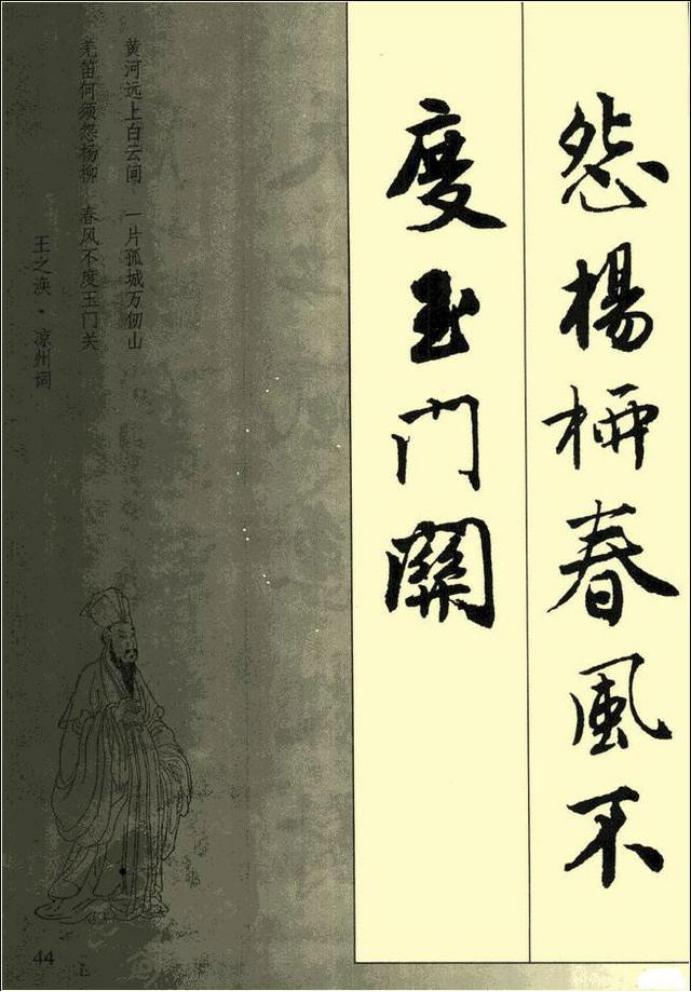 怨楊柳春風不
度玉門關
黄河远上白云间 一片孤城万仞山
羌笛何须怨杨柳 春风不度玉门关
王之涣·凉州词
44